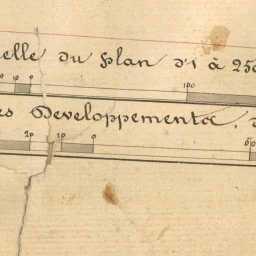 elle du plan d'1 à 250
0 0 100
es Developpements, d
20 10 0 50